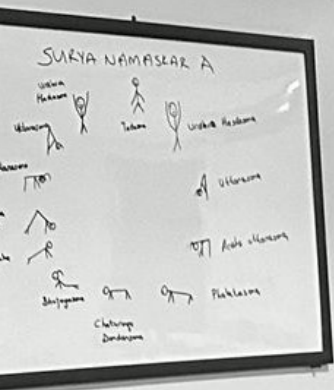 SURYA NAMASKAR A
Urdhva
Hastasana
Tadasana
Urdhva Hastasana
Uttanasana
Uttanasana
Ardha uttanasana
Phalakasana
Chaturanga
Dandasana
Bhujangasana